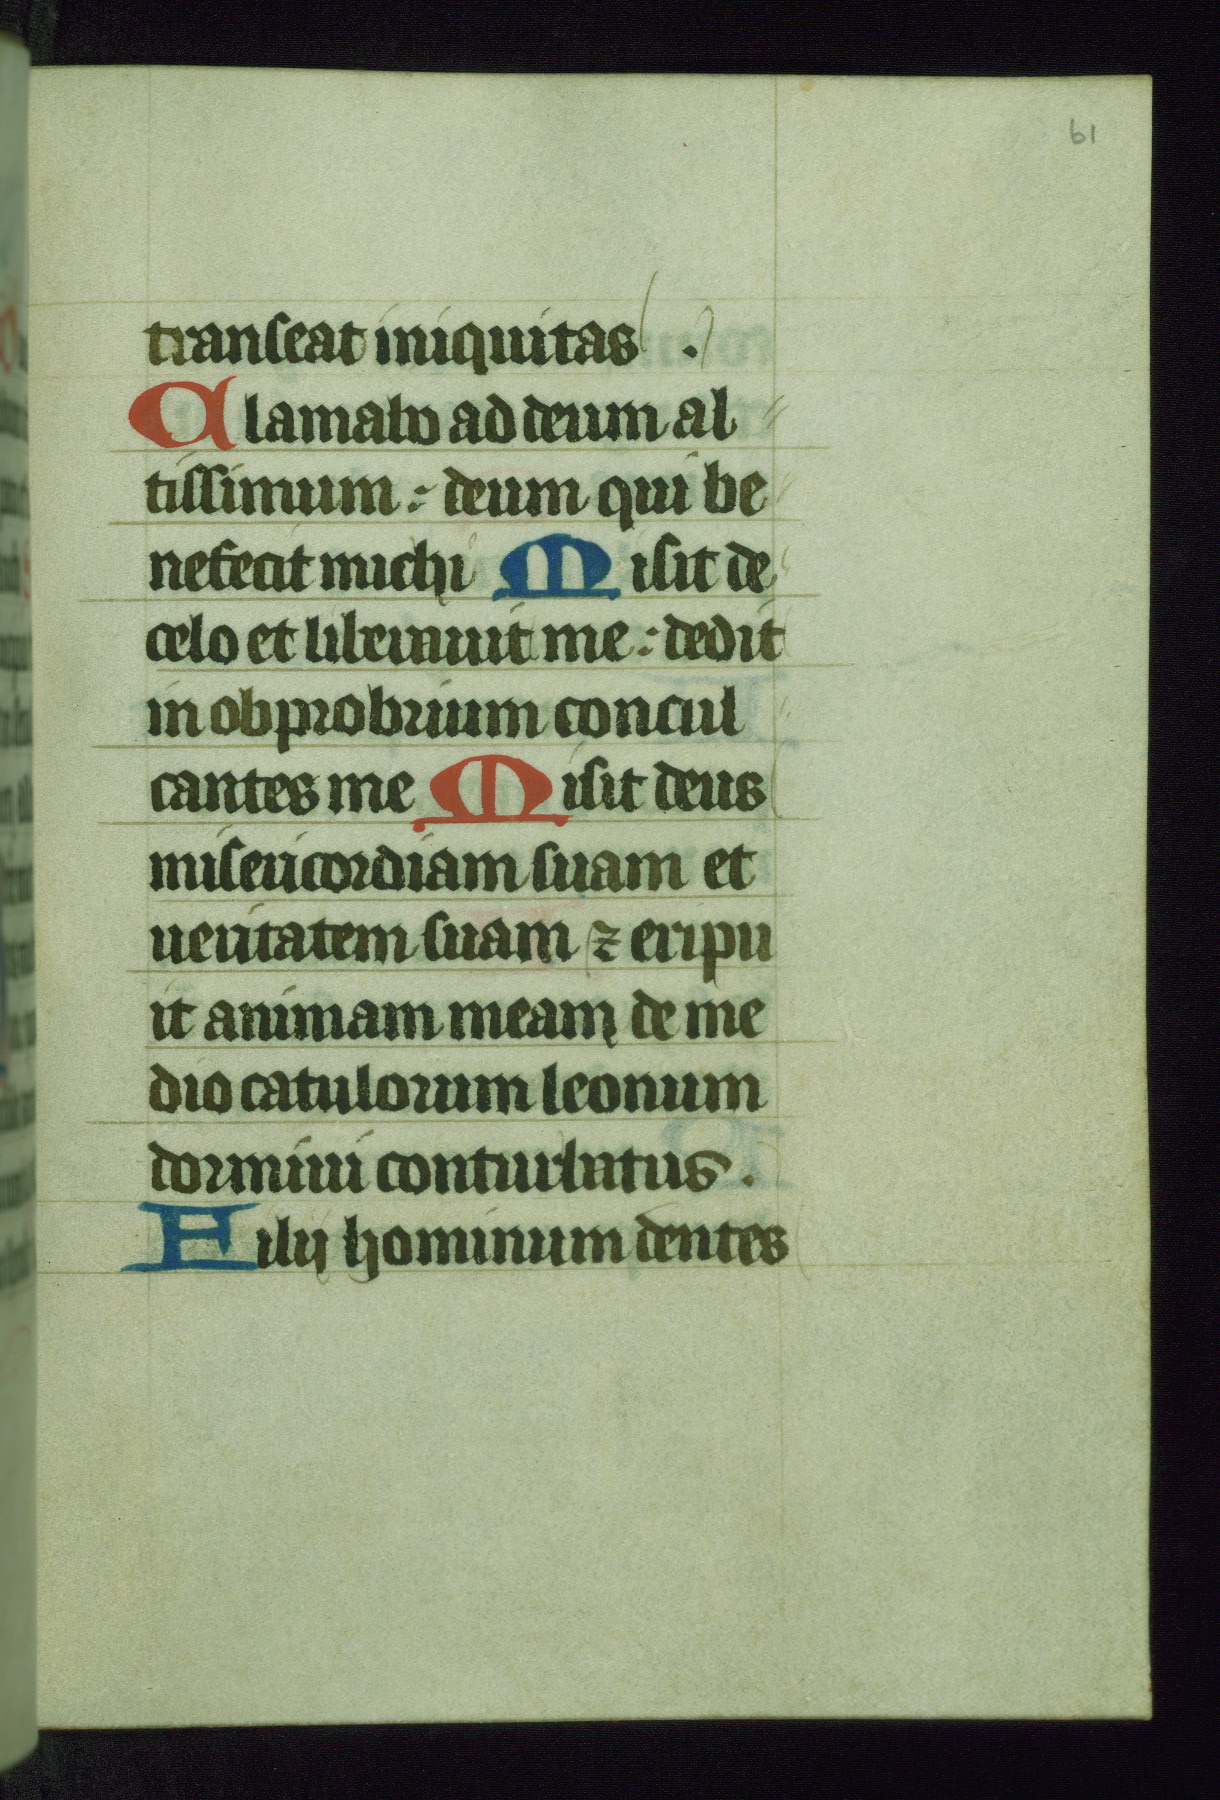 61
transeat iniquitas .
Clamabo ad deum al
tissimum : deum qui be
nefecit michi Misit de
celo et liberauit me : dedit
in obprobrium concul
cantes me Misit deus
misericordiam suam et
ueritatem suam ⁊ eripu
it animam meam de me
dio catulorum leonum
dormiui conturbatus .
Filij hominum dentes